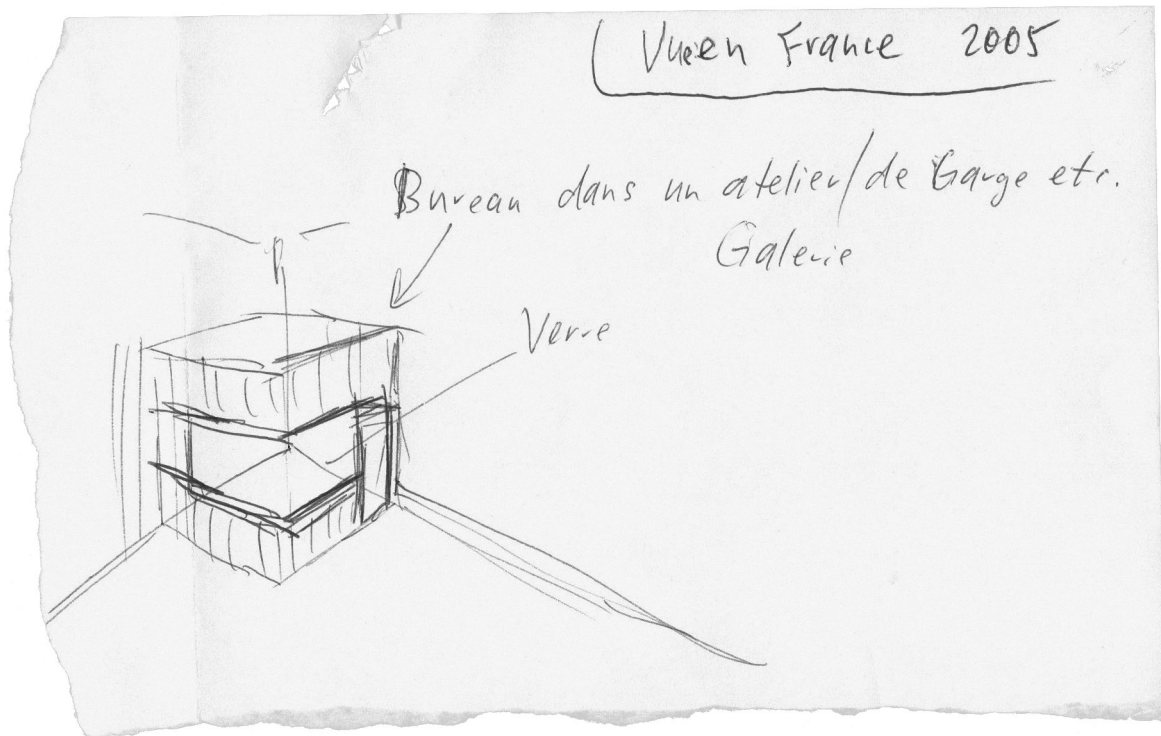 Vue en France 2005
Bureau dans un atelier/de Garge etc.
Galerie
Verre